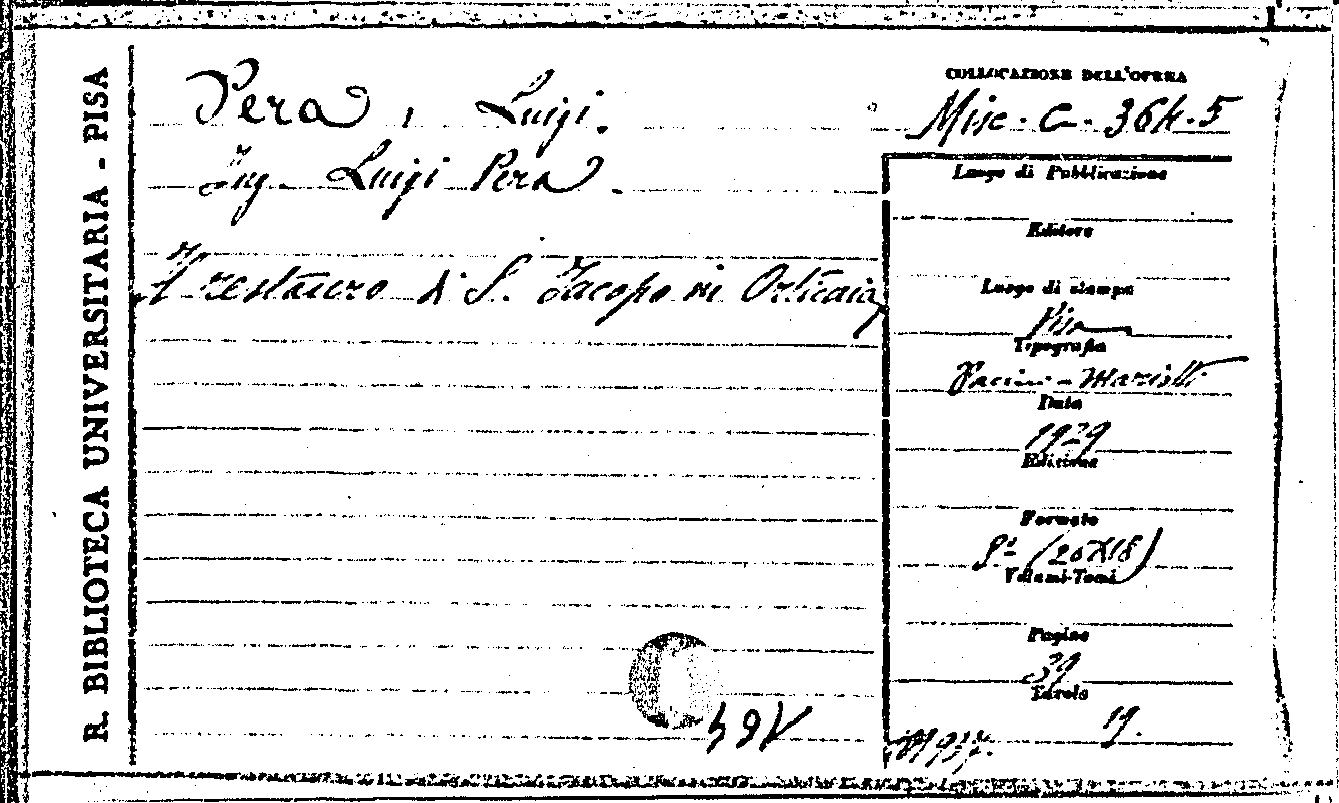 R. BIBLIOTECA UNIVERSITARIA - PISA
Pera, Luigi.
Ing. Luigi Pera.
Il restauro di S. Jacopo in Orticaia,
COLLOCAZIONE DELL'OPERA
Misc. C. 364.5
Luogo di Pubblicazione
Editore
Luogo di stampa
Pisa
Tipografia
Pacini-Mariotti
Data
1929
Edizione
Formato
8º (26X18)
Volumi-Tomi
Pagine
39
Tavole